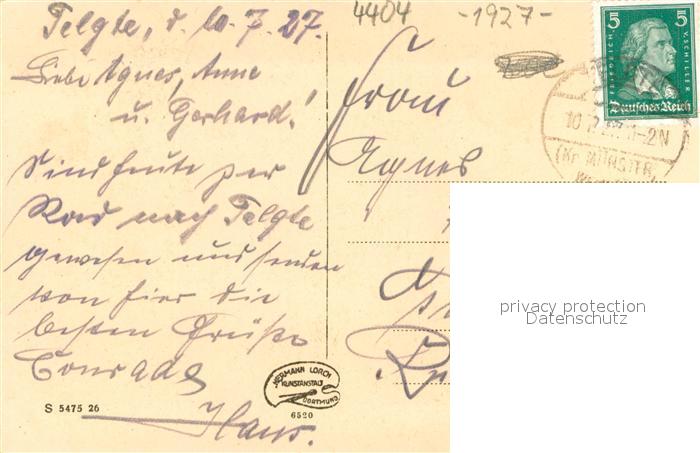 4404
-1927-
Telgte, d. 10.7.27.
Liebe Agnes, Anne
u. Gerhard!
Sind heute per
Rad nach Telgte
gewesen und senden
von hier die
besten Grüße
Conrads
Hans.
Frau
Agnes
5 5
FRIEDRICH V. SCHILLER
Deutsches Reich
10.7.27.11-12N
(Kr. MÜNSTER
HERMANN LORCH
KUNSTANSTALT
DORTMUND
6520
S 5475 26
privacy protection
Datenschutz